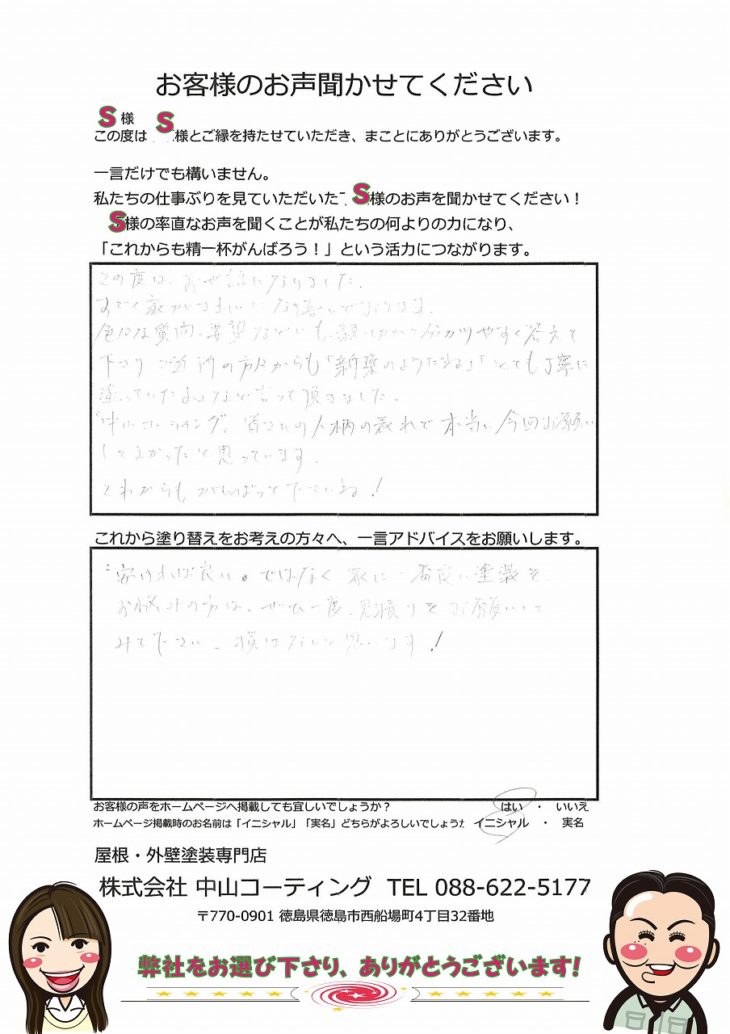 お客様のお声聞かせてください
S様
この度は S様とご縁を持たせていただき、まことにありがとうございます。
一言だけでも構いません。
私たちの仕事ぶりを見ていただいた S様のお声を聞かせてください！
S様の率直なお声を聞くことが私たちの何よりの力になり、
「これからも精一杯がんばろう！」という活力につながります。
この度は、お世話になりました。
すてきな家が
色々な質問、要望などにも、親切かつ分かりやすく答えて
下さり ご近所の方々からも「新築のようだね」とても丁寧に
塗っていたよ」など言って頂きました。
"中山コーティング" 皆さんの人柄の表れで本当に今回お願い
してよかったと思っています。
これからも がんばって下さいね！
これから塗り替えをお考えの方々へ、一言アドバイスをお願いします。
安ければ良い。ではなく 家に一番良い塗装を
お悩みの方は、ぜひ一度、見積りをお願いして
みて下さい。損はないと思います！
お客様の声をホームページへ掲載しても宜しいでしょうか？ はい ・ いいえ
ホームページ掲載時のお名前は「イニシャル」「実名」どちらがよろしいでしょうか イニシャル ・ 実名
屋根・外壁塗装専門店
株式会社 中山コーティング TEL 088-622-5177
〒770-0901 徳島県徳島市西船場町4丁目32番地
弊社をお選び下さり、ありがとうございます!